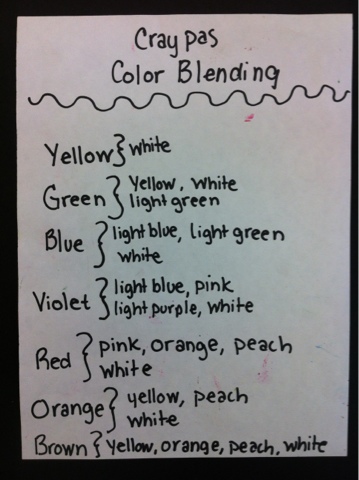 Cray pas
Color Blending
Yellow } white
Green } Yellow, White
light green
Blue { light blue, light green
white
Violet } light blue, pink
light purple, white
Red } pink, orange, peach
white
Orange } yellow, peach
white
Brown { Yellow, orange, peach, white